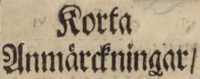 Korta
Anmärckningar/